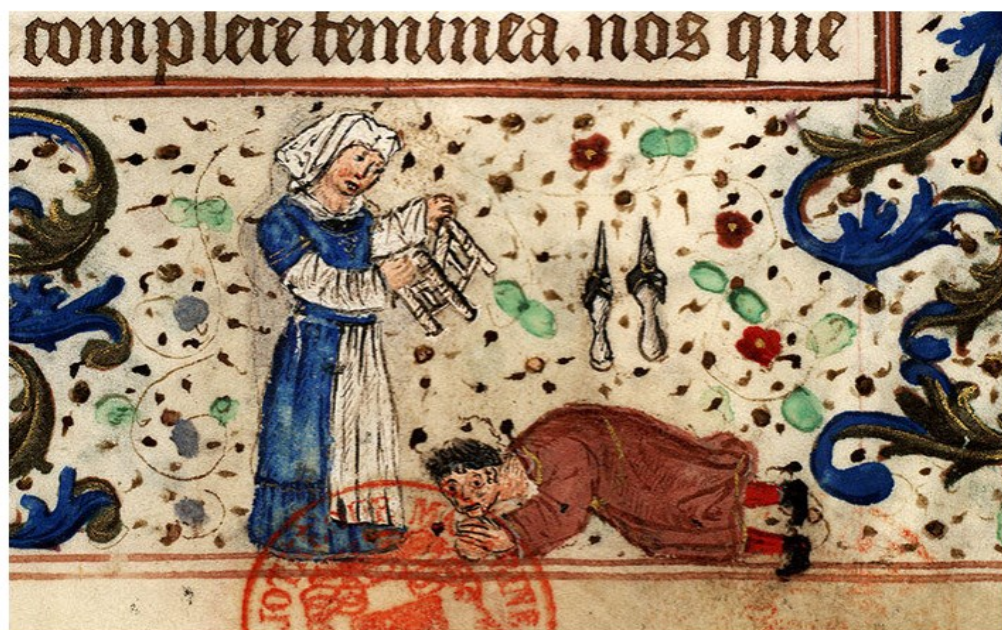 complere feminea. nos que